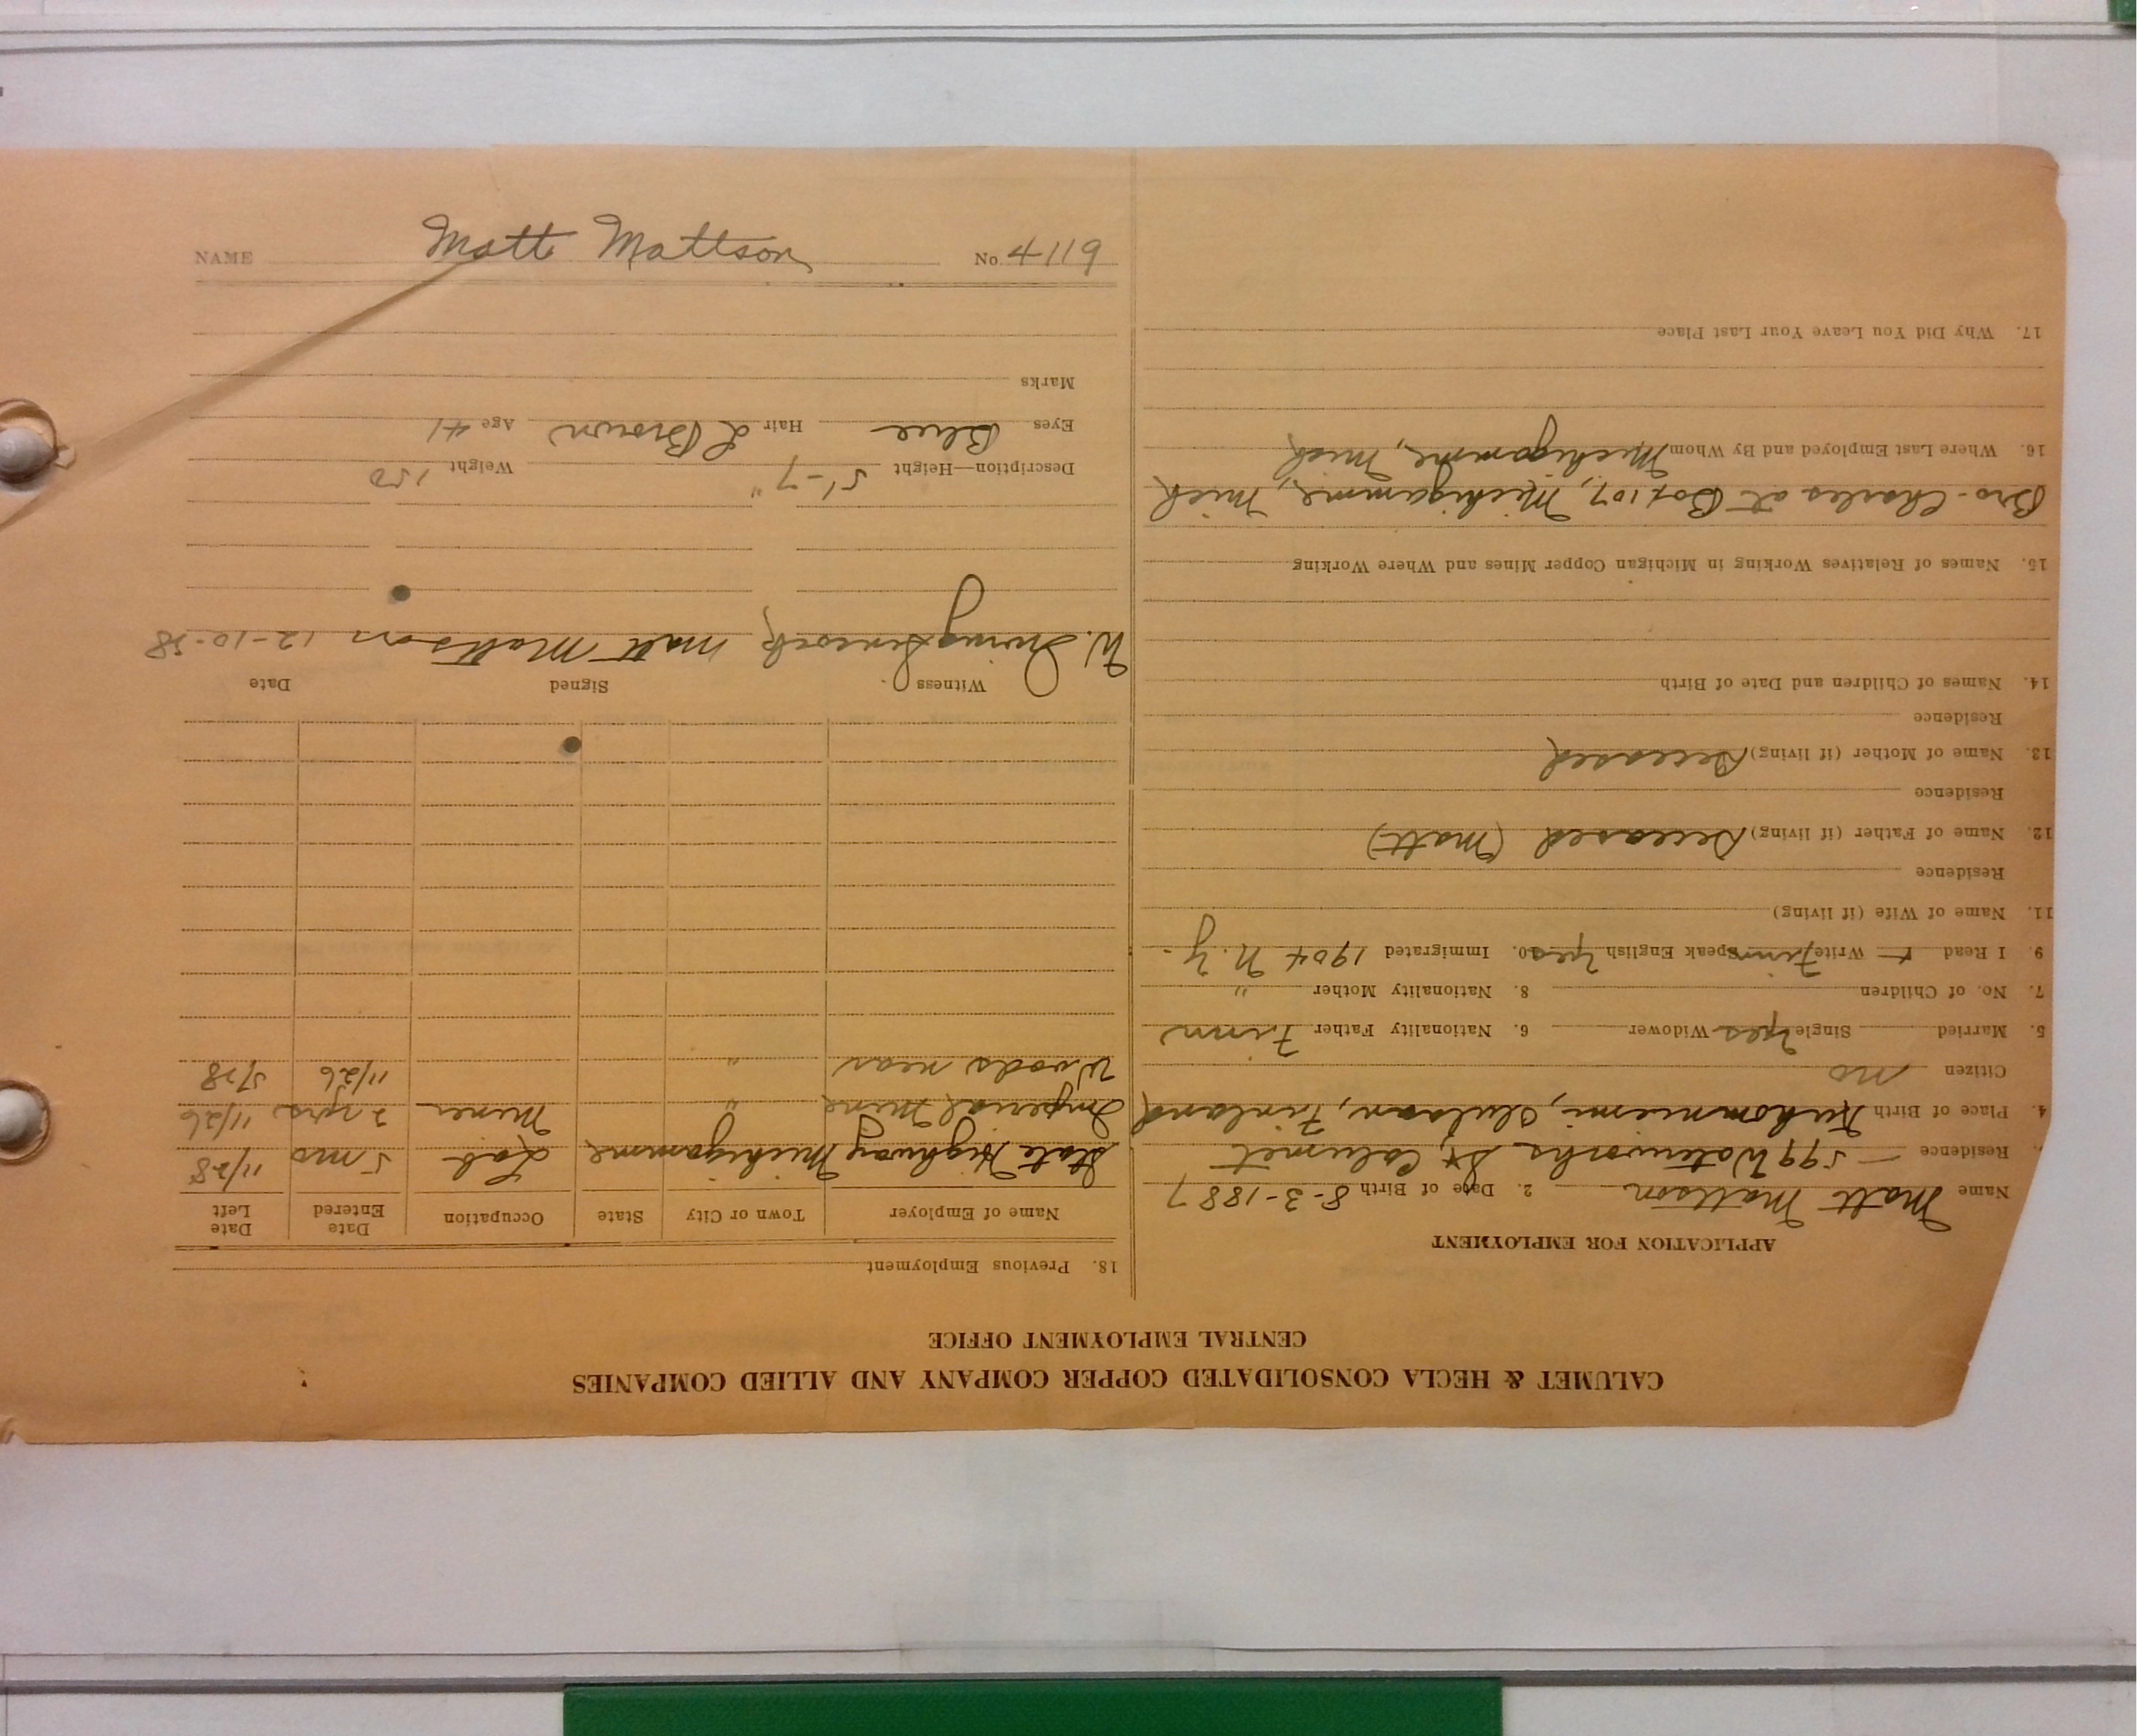 CALUMET & HECLA CONSOLIDATED COPPER COMPANY AND ALLIED COMPANIES
CENTRAL EMPLOYMENT OFFICE
APPLICATION FOR EMPLOYMENT
Name Matt Mattson 2. Date of Birth 8-3-1887
Residence 599 Waterworks St, Calumet
4. Place of Birth Finland
Citizen no
5. Married Single yes Widower 6. Nationality Father Finn
7. No. of Children 8. Nationality Mother "
9. I Read + Write Finn Speak English yes 10. Immigrated 1904 N.Y.
11. Name of Wife (if living)
Residence
12. Name of Father (if living) Deceased (Matt)
Residence
13. Name of Mother (if living) Deceased
Residence
14. Names of Children and Date of Birth
15. Names of Relatives Working in Michigan Copper Mines and Where Working
Bro- Charles at Box 107, Michigamme, Mich
16. Where Last Employed and By Whom Michigamme, Mich
17. Why Did You Leave Your Last Place
18. Previous Employment
Name of Employer Town or City State Occupation Date Entered Date Left
State Highway Michigamme Lab 5 mo 11/28
Imperial Mine " Miner 2 yrs 11/26
Woods near " 11/26 5/28
Witness Signed Date
W. Irving Matt Mattson 12-10-28
Description—Height 5'-7" Weight 150
Eyes Blue Hair L Brown Age 41
Marks
NAME Matt Mattson No 4119